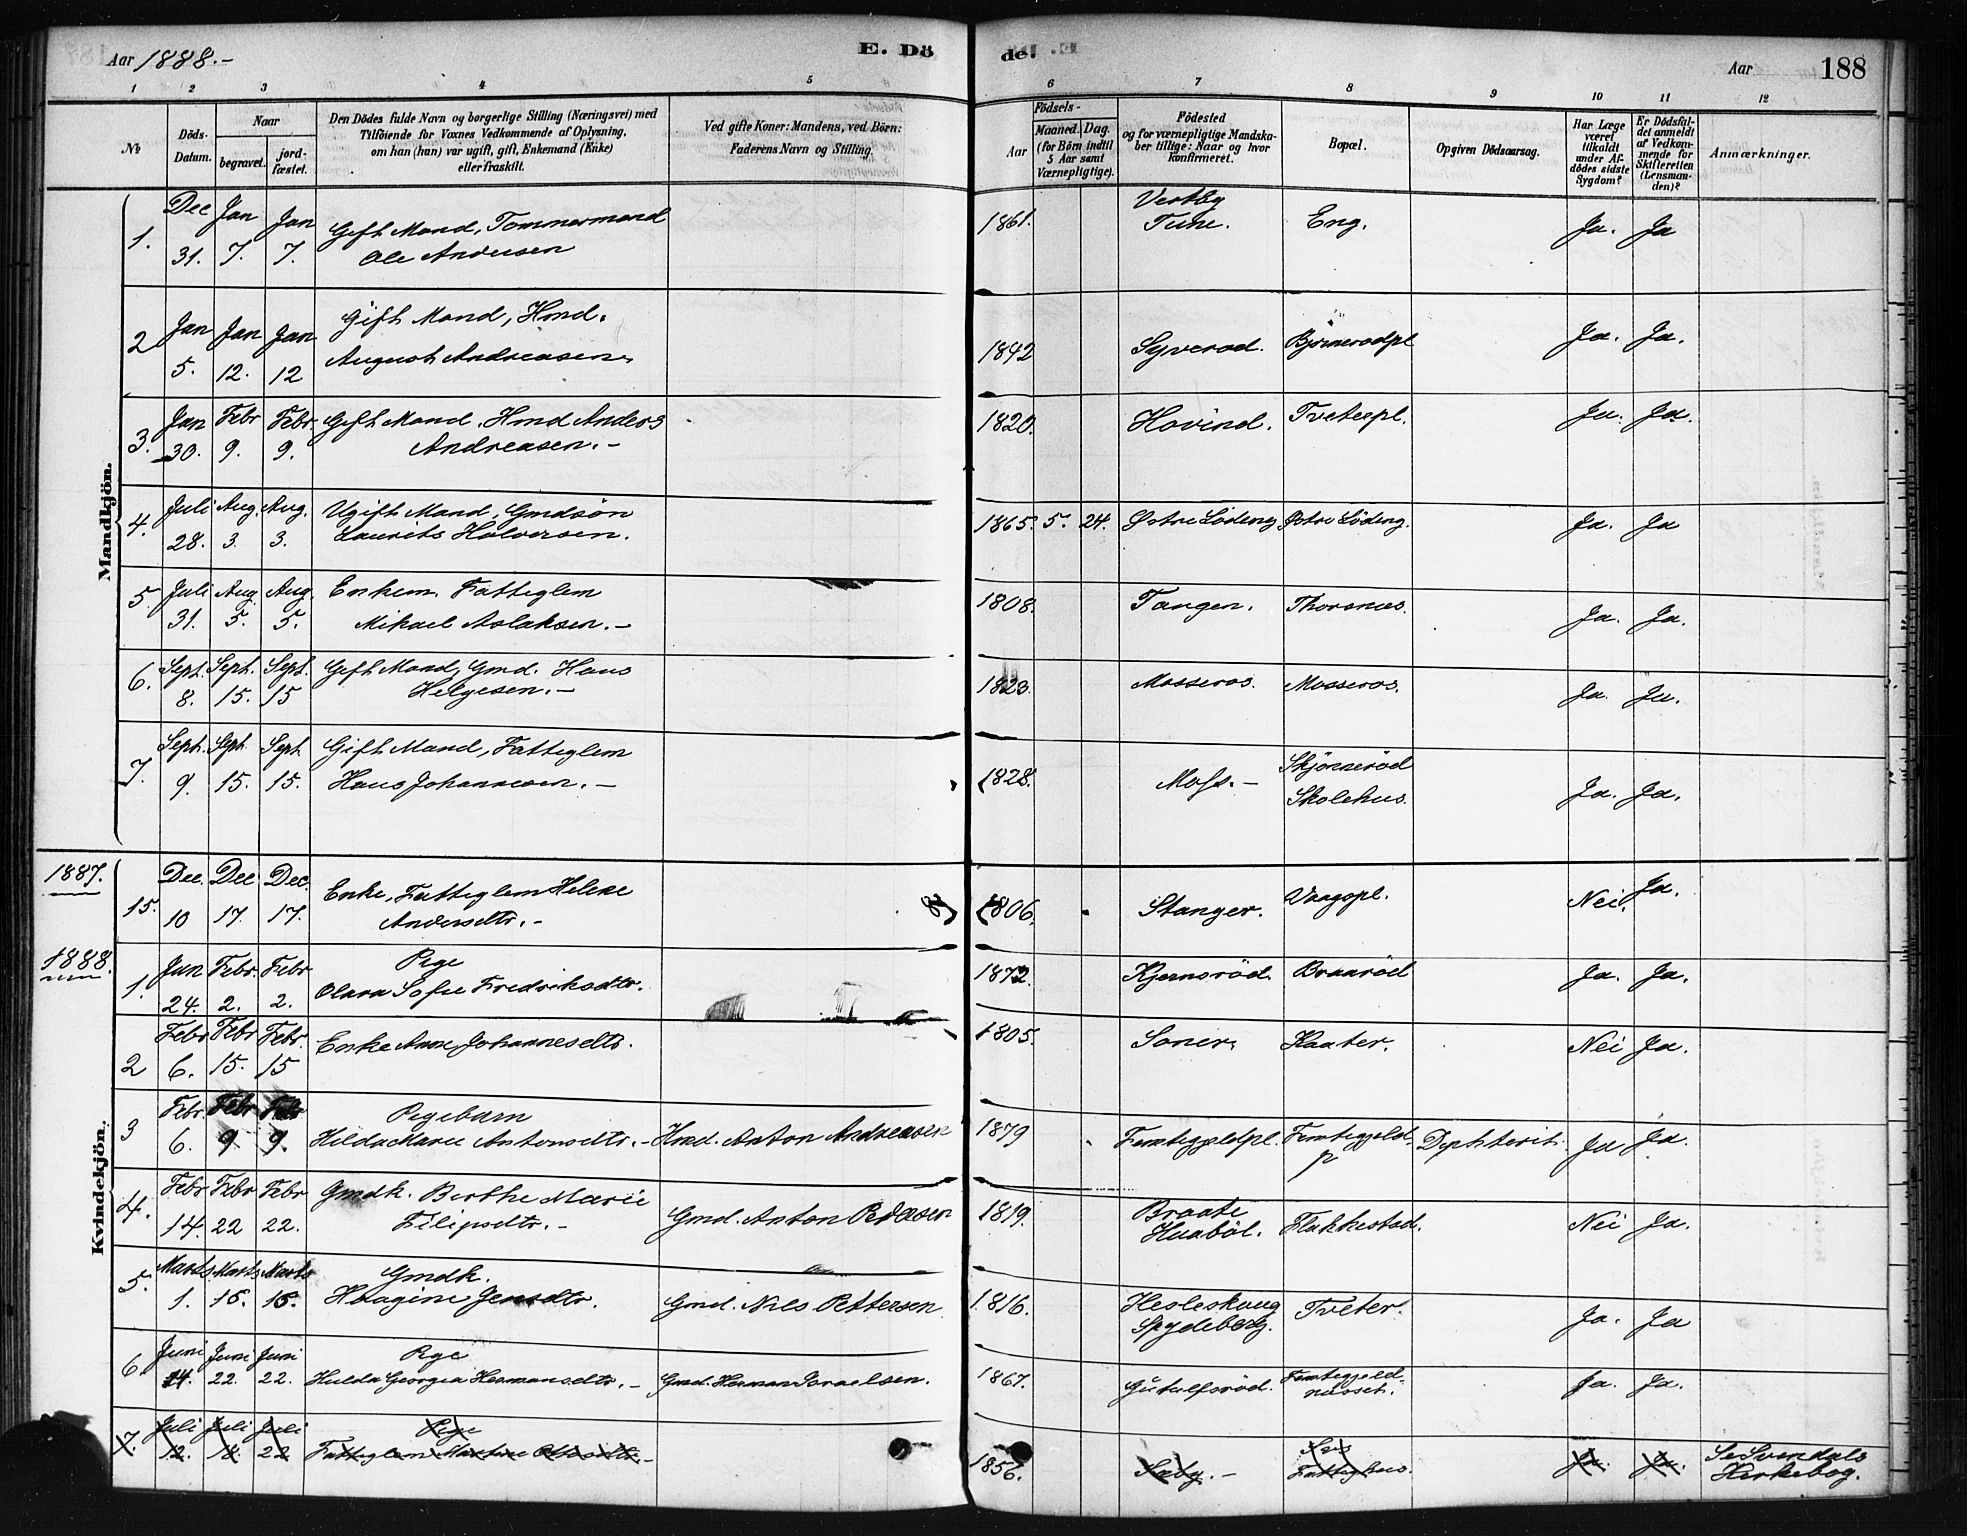 Aar 1888.-
E. Dö
de.
Aar
188
1 2 3 4 5 6 7 8 9 10 11 12
No
Döds-
Datum.
Naar
begravet.
jord-
fæstet.
Den Dödes fulde Navn og borgerlige Stilling (Næringsvei) med
Tilföiende for Voxnes Vedkommende af Oplysning,
om han (hun) var ugift, gift, Enkemand (Enke)
eller fraskilt.
Ved gifte Koner: Mandens, ved Börn:
Faderens Navn og Stilling.
Födsels-
Aar
Maaned.
Dag.
(for Börn indtil
5 Aar samt
Værnepligtige).
Födested
og for værnepligtige Mandska-
ber tillige: Naar og hvor
konfirmeret.
Bopæl.
Opgiven Dödsaarsag.
Har Læge
været
tilkaldt
under Af-
dödes sidste
Sygdom?
Er Dödsfal-
det anmeldt
af Vedkom-
mende for
Skifteretten
(Lensman-
den)?
Anmærkninger.
Mandkjön.
1. Dec 31. Jan 7. Jan 7. Gift Mand, Tømmermand
Ole Andersen 1861. Vestby
Tune. Eng. Ja. Ja
2 Jan 5. Jan 12. Jan 12 Gift Mand, Hmd.
August Andreasen. 1842 Syverød. Bjørnerødpl Ja. Ja.
3. Jan 30. Febr 9. Febr. 9. Gift Mand. Hmd Anders
Andreasen.- 1820. Hovind. Tveterpl. Ja. Ja.
4. Juli 28. Aug. 3. Aug. 3. Ugift Mand, Gmdsön
Laurits Halvorsen. 1865. 5. 24. Østre Lödeng Østre Löding. Ja. Ja
5 Juli 31. Aug. 5. Aug. 5. Enkem. Fattiglem
Mikael Aslaksen.- 1808. Tangen. Thorsnæs. Ja. Ja.
6. Sept. 8. Sept. 15. Sept. 15 Gift Mand, Gmd. Hans
Helgesen.- 1823. Mosseros. Mosseros. Ja. Ja.
7. Sept. 9. Sept. 15. Sept 15. Gift Mand, Fattiglem
Hans Johannesen.- 1828. Moss.- Skjönneröd
Skolehus. Ja. Ja.
Kvindekjön.
1887.
15. Dec. 10 Dec 17. Dec. 17. Enke, Fattiglem Helene
Andersdtr.- 1806. Stanger. Vaagspl. Nei. Ja.
1888.
1. Jan 24. Febr. 2. Febr 2. Pige
Olava Sofie Fredriksdtr. 1872. Kjernsröd. Braaröd Ja. Ja.
2 Febr 6. Febr 15. Febr. 15 Enke Anne Johannesdtr. 1805. Soner. Kaater. Nei Ja.
3 Febr. 6. Febr 9 Febr 9. Pigebarn
Hilda Marie Antonsdtr.- Hmd. Anton Andreasen 1879 Femtegjeldpl. Femtegjeld-
p Dephterit. Ja Ja.
4. Febr 14. Febr 22 Febr 22. Gmdk. Berthe Marie
Filipsdtr.- Gmd. Anton Pedersen 1819. Braate
Haaböl. Flakkestad. Nei Ja.
5. Marts 1. Marts 15. Marts 15. Gmdk.
Haagine Jensdtr. Gmd. Nils Pettersen 1816. Hesleskoug
Spydeberg. Tveter. Ja. Ja
6 Juni 14. Juni 22. Juni 22. Pige
Hulda Georgia Hermansdtr.- Gmd. Herman Israelsen. 1867. Gutulfsröd. Femtegjeld-
nesset. Ja. Ja.
7. Juli 12. Juli 18. Juli 22 Pige
Fattiglem Martine 1856. Saby.- Fattighus. Ja. Ja. Se Svendals
Kirkebog.